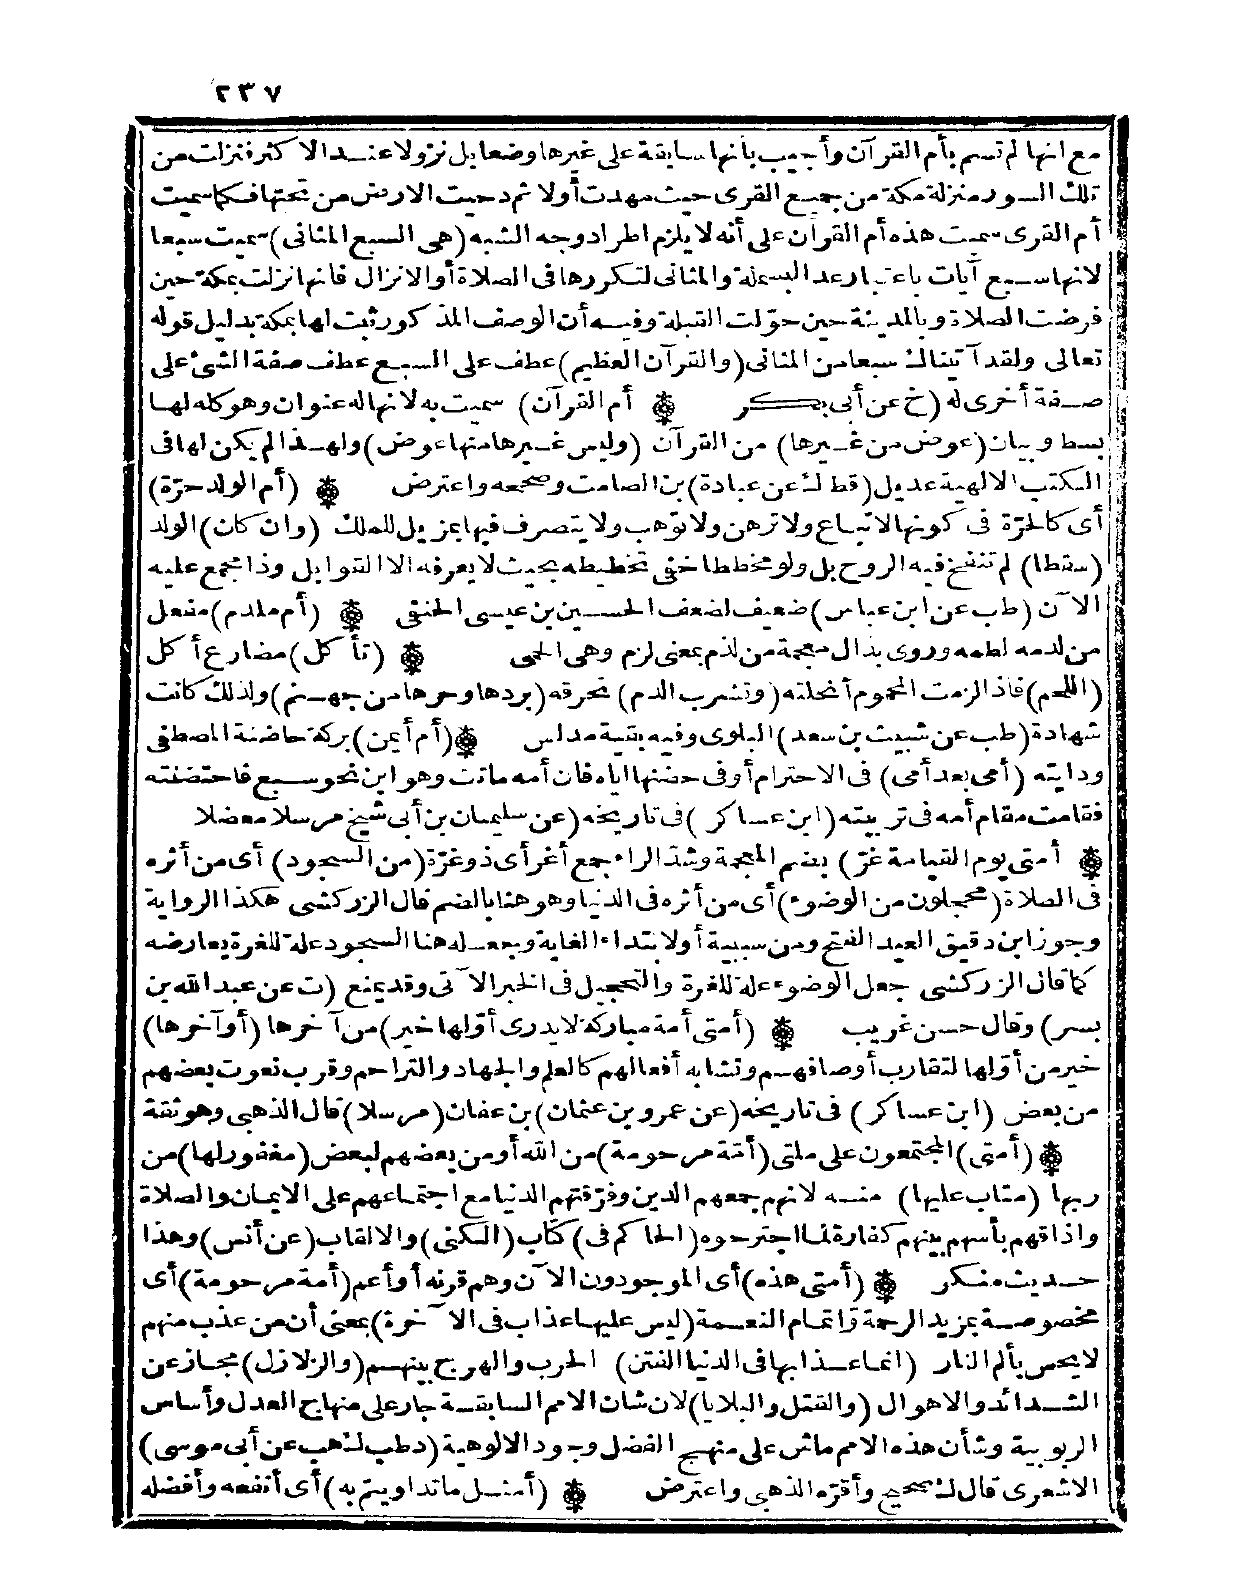 ٢٣٧
مع انها لم تسم بأم القرآن وأجيب بأنها سابقة على غيرها وضعا بل نزولا عند الاكثر فنزلت من
تلك السور منزلة مكة من جميع القرى حيث مهدت أولا ثم دحيت الارض من تحتها فكما سميت
أم القرى سميت هذه أم القرآن على أنه لا يلزم اطراد وجه الشبه (هى السبع المثانى) سميت سبعا
لانها سبع آيات باعتبار عد البسملة والمثانى لتكررها فى الصلاة أو الانزال فانها نزلت بمكة حين
فرضت الصلاة وبالمدينة حين حوّلت القبلة وفيه أن الوصف المذكور ثبت لها بمكة بدليل قوله
تعالى ولقد آتيناك سبعا من المثانى (والقرآن العظيم) عطف على السبع عطف صفة الشئ على
صفة أخرى له (خ عن أبى بكر ۞ أم القرآن) سميت به لانها له عنوان وهو كله لها
بسط وبيان (عوض من غيرها) من القرآن (وليس غيرها منها عوض) ولهذا لم يكن لها فى
الكتب الالهية عديل (قط ك عن عبادة) بن الصامت وصححه واعترض ۞ (أم الولد حرّة)
أى كالحرّة فى كونها لا تباع ولا ترهن ولا توهب ولا يتصرف فيها بمزيل للملك (وان كان) الولد
(سقطا) لم تنفخ فيه الروح بل ولو مخططا خفى تخطيطه بحيث لا يعرفه الا القوابل وذا مجمع عليه
الآن (طب عن ابن عباس) ضعيف لضعف الحسين بن عيسى الحنفى ۞ (أم ملدم) مفعل
من لدمه لطمه وروى بذال معجمة من لذم بمعنى لزم وهى الحمى ۞ (تأكل) مضارع أكل
(اللحم) فاذا لزمت المحموم أنحلته (وتشرب الدم) تحرقه (بردها وحرها من جهنم) ولذلك كانت
شهادة (طب عن شبيث بن سعد) البلوى وفيه بقية مدلس ۞ (أم أيمن) بركة حاضنة المصطفى
ودايته (أمى بعد أمى) فى الاحترام أو فى حضنها اياه فان أمه ماتت وهو ابن نحو سبع فاحتضنته
فقامت مقام أمه فى تربيته (ابن عساكر) فى تاريخه (عن سليمان بن أبى شيخ مرسلا معضلا
۞ أمتى يوم القيامة غرّ) بضم المعجمة وشد الراء جمع أغر أى ذو غرّة (من السجود) أى من أثره
فى الصلاة (محجلون من الوضوء) أى من أثره فى الدنيا وهو هنا بالضم قال الزركشى هكذا الرواية
وجوز ابن دقيق العيد الفتح ومن سببية أو لابتداء الغاية وبجعله هنا السجود علة للغرة يعارضه
كما قال الزركشى جعل الوضوء علة للغرة والتحجيل فى الخبر الآتى وقد يمنع (ت عن عبد الله بن
بسر) وقال حسن غريب ۞ (أمتى أمة مباركة لا يدرى أوّلها خير) من آخرها (أو آخرها)
خير من أوّلها لتقارب أوصافهم وتشابه أفعالهم كالعلم والجهاد والتراحم وقرب نعوت بعضهم
من بعض (ابن عساكر) فى تاريخه (عن عمرو بن عثمان) بن عفان (مرسلا) قال الذهبى وهو ثقة
۞ (أمتى) المجتمعون على ملتى (أمّة مرحومة) من الله أو من بعضهم لبعض (مغفور لها) من
ربها (متاب عليها) منه لانهم جمعهم الدين وفرّقتهم الدنيا مع اجتماعهم على الايمان والصلاة
واذاقهم بأسهم بينهم كفارة لما اجترحوه (الحاكم فى) كتاب (الكنى) والالقاب (عن أنس) وهذا
حديث منكر ۞ (أمتى هذه) أى الموجودون الآن وهم قرنه أو أعم (أمة مرحومة) أى
مخصوصة بمزيد الرحمة واتمام النعمة (ليس عليها عذاب فى الآخرة) بمعنى أن من عذب منهم
لا يحس بألم النار (انما عذابها فى الدنيا الفتن) الحرب والهرج بينهم (والزلازل) مجاز عن
الشدائد والاهوال (والقتل والبلايا) لان شان الامم السابقة جار على منهاج العدل وأساس
الربوبية وشأن هذه الامم ماش على منهج الفضل وجود الالوهية (د طب ك هب عن أبى موسى)
الاشعرى قال ك صحيح وأقرّه الذهبى واعترض ۞ (أمثل ما تداويتم به) أى أنفعه وأفضله